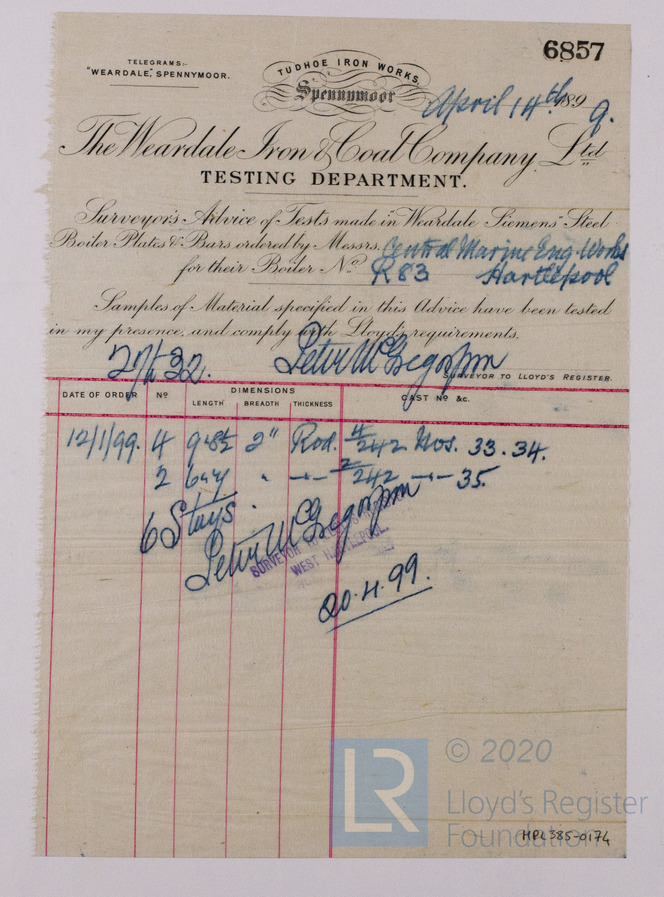 6857
TELEGRAMS:-
"WEARDALE," SPENNYMOOR.
TUDHOE IRON WORKS,
Spennymoor
April 14th 1899.
The Weardale Iron & Coal Company Ltd
TESTING DEPARTMENT.
Surveyor's Advice of Tests made in Weardale Siemens' Steel
Boiler Plates & Bars ordered by Messrs. Central Marine Eng. Works
for their Boiler No R83 Hartlepool
Samples of Material specified in this Advice have been tested
in my presence, and comply with Lloyd's requirements.
SURVEYOR TO LLOYD'S REGISTER.
DATE OF ORDER No DIMENSIONS CAST No &c.
LENGTH BREADTH THICKNESS
12/1/99. 4 2" Rod. 4/242 Nos. 33. 34.
2 " 2/242 35.
6 Stays.
Peter McGregor
SURVEYOR TO LLOYD'S REGISTER
WEST HARTLEPOOL.
20.4.99.
LR
© 2020
Lloyd's Register
Foundation
HPL385-0174